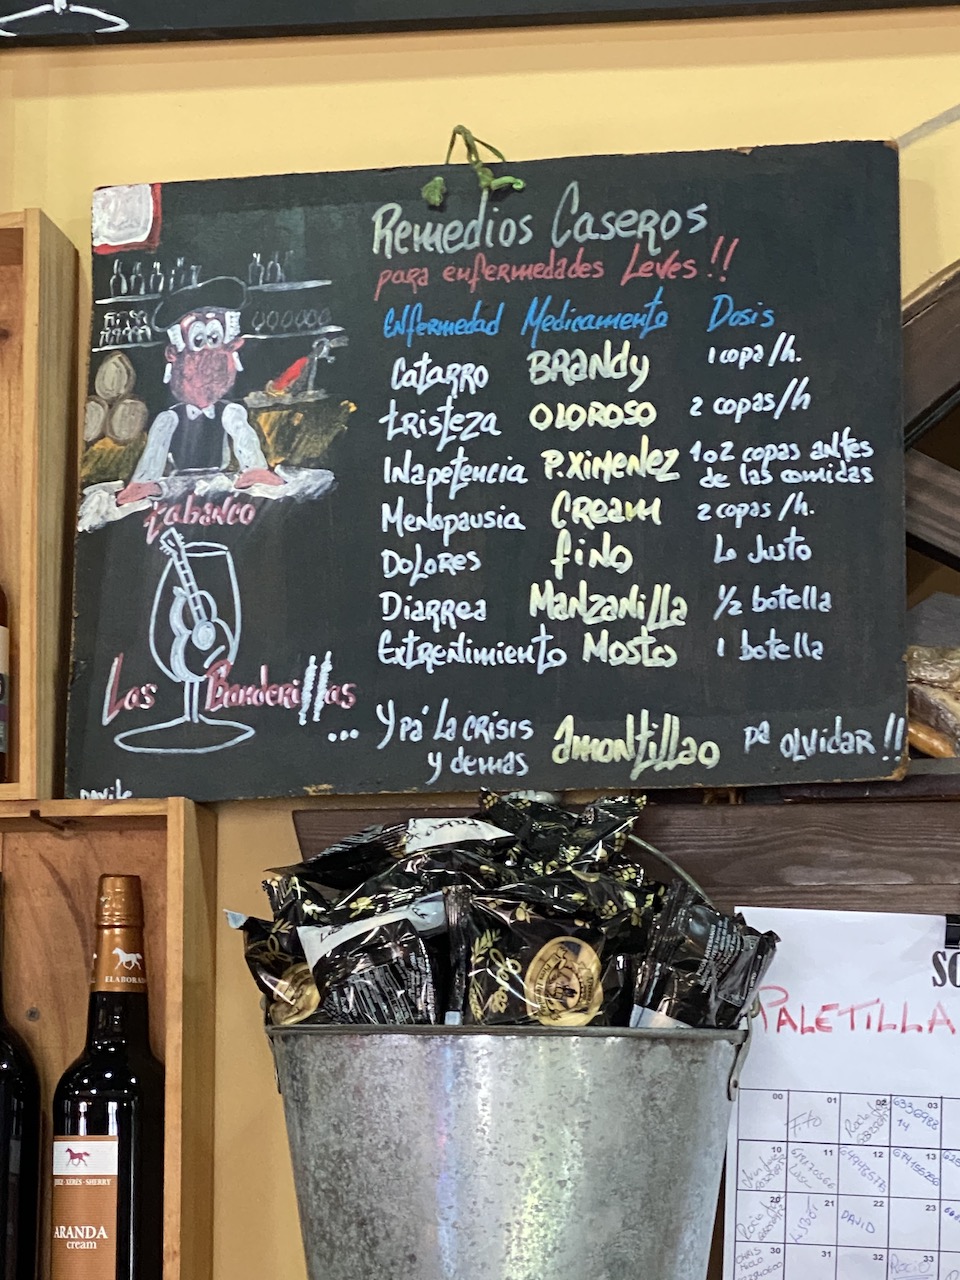 Remedios Caseros
para enfermedades Leves!!
Enfermedad Medicamento Dosis
Catarro Brandy 1 copa/h.
tristeza Oloroso 2 copas/h
Inapetencia P.Ximenez 1 o 2 copas antes
de las comidas
Menopausia Cream 2 copas/h.
Dolores fino Lo Justo
Diarrea Manzanilla 1/2 botella
Extreñimiento Mosto 1 botella
... Y pa' La crisis
y demas Amontillao pa olvidar!!
tabanco
Las Banderillas
ELABORAD
JEREZ-XERÈS-SHERRY
ARANDA
cream
SO
PALETILLA
00 01 02 03
Fito
10 11 12 13
20 21 22 23
DAVID
30 31 32 33
Rocio